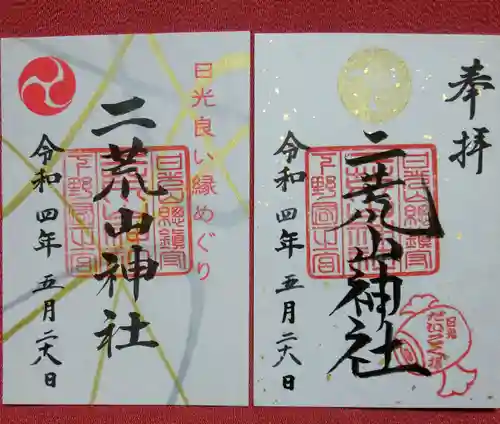 日光良い縁めぐり
二荒山神社
令和四年五月二十八日
奉拝
二荒山神社
令和四年五月二十八日
日光
だいこくさま